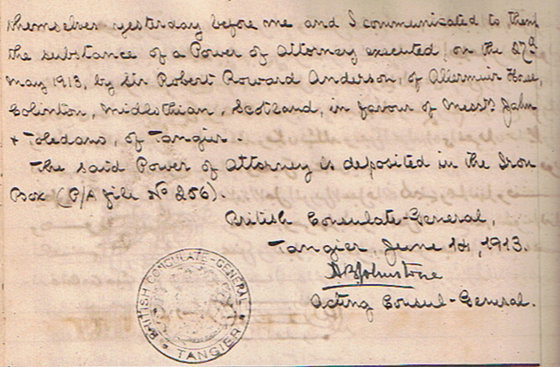 themselves yesterday before me and I communicated to them
the substance of a Power of Attorney executed on the 27th
May 1913, by Sir Robert Rowand Anderson, of Allermuir House,
Colinton, Midlothian, Scotland, in favour of Messrs Jahn
& Toledano of Tangier.
The said Power of Attorney is deposited in the Iron
Box (P/A file No 256).
British Consulate-General,
Tangier, June 14, 1913.
Johnstone
Acting Consul-General.
BRITISH CONSULATE-GENERAL
TANGIER